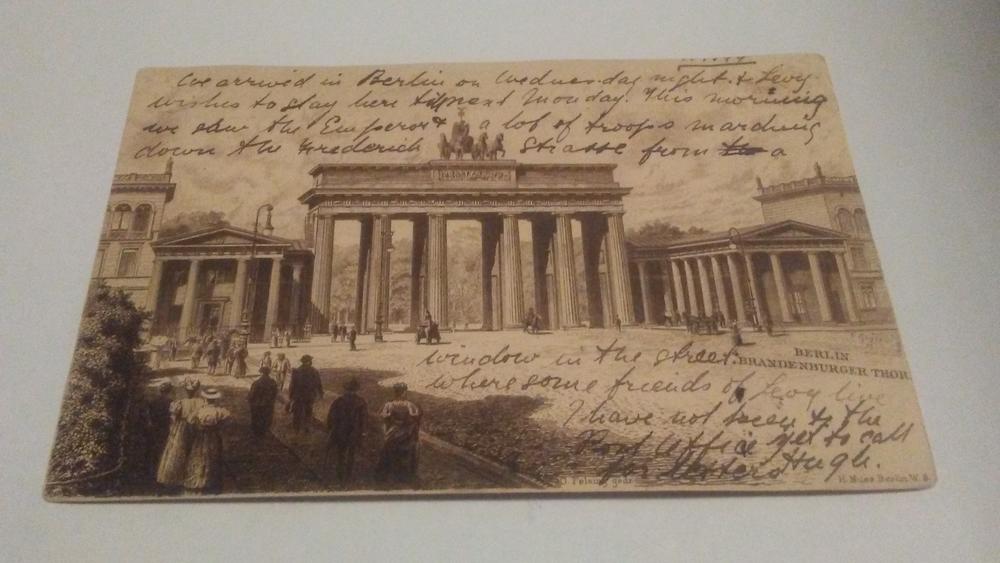 We arrived in Berlin on Wednesday night & Levy
wishes to stay here till next Monday. This morning
we saw the Emperor & a lot of troops marching
down the Frederich Strasse from a
window in the street
where some friends of Levy live
I have not been to the
Post Office yet to call
for letters Hugh.
BERLIN
BRANDENBURGER THOR.
Berlin W. 8.